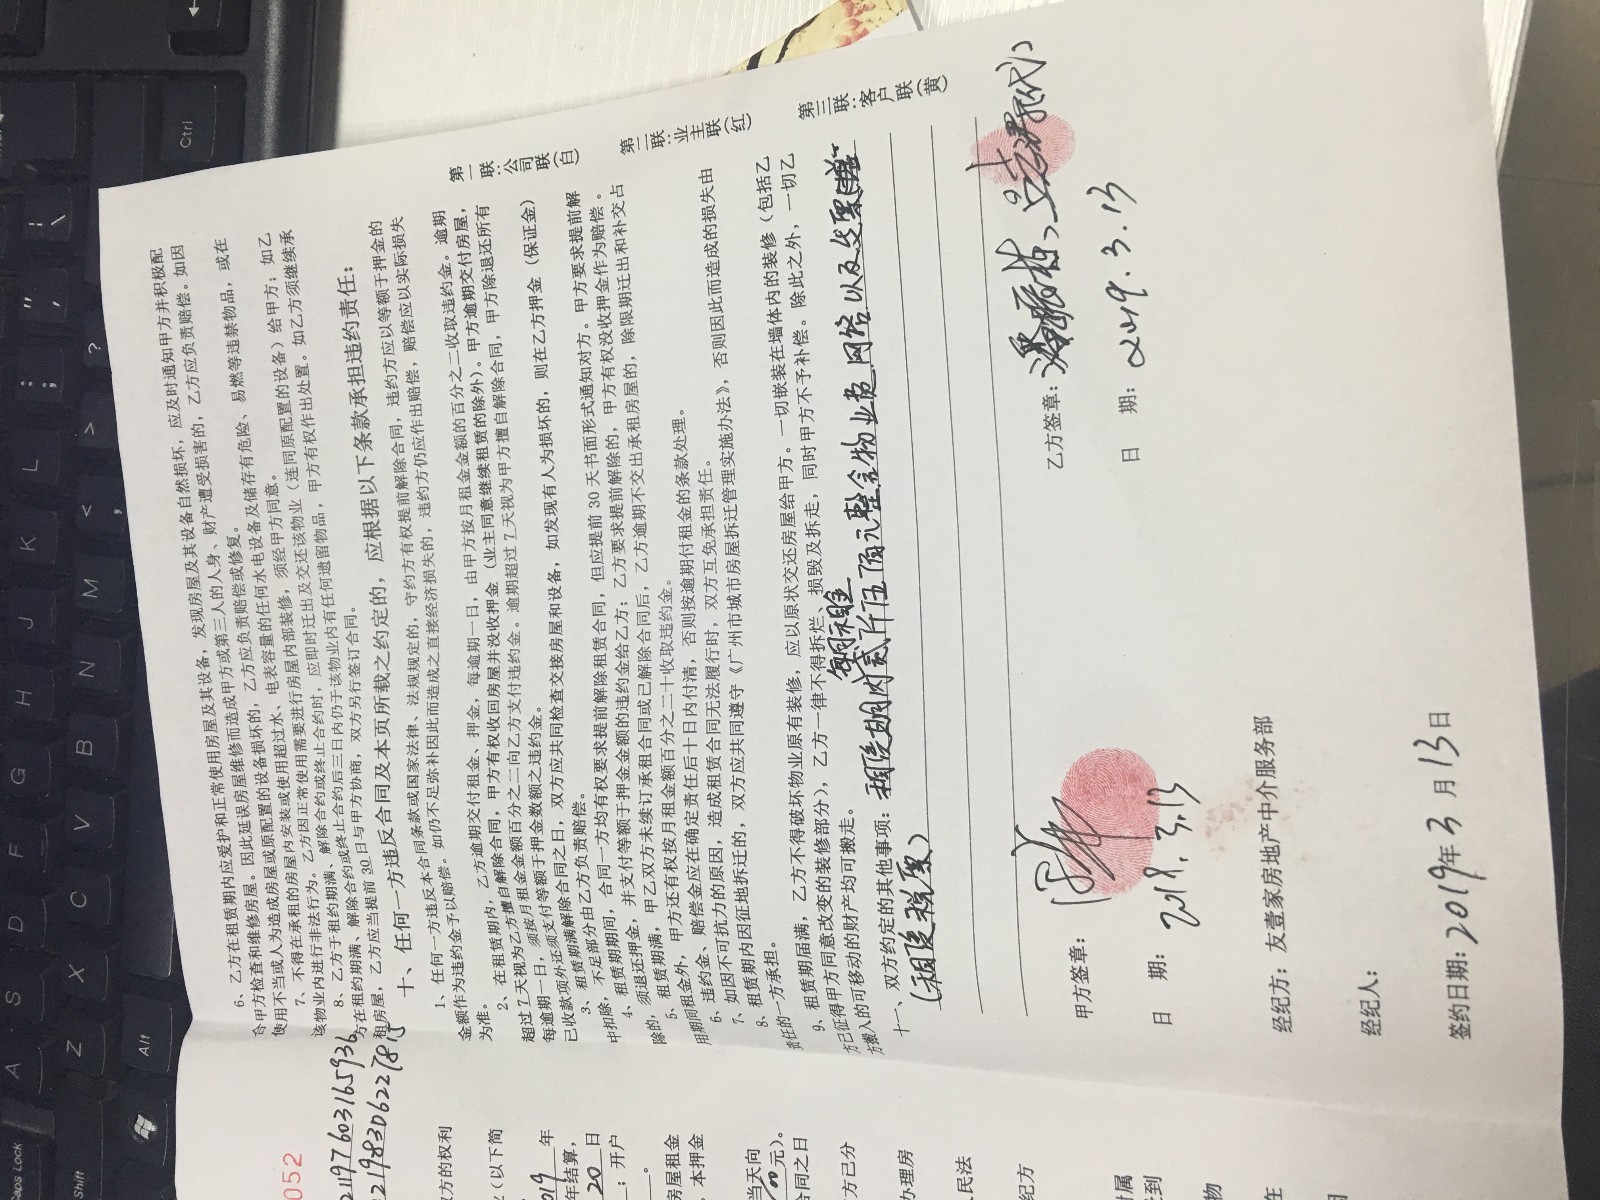 6、乙方在租赁期内应爱护和正常使用房屋及其设备，发现房屋及其设备自然损坏，应及时通知甲方并积极配
合甲方检查和维修房屋。因此延误房屋维修而造成甲方或第三人的人身、财产遭受损害的，乙方应负责赔偿。如因
使用不当或人为造成房屋或原配置的设备损坏的，乙方应负责赔偿或修复。
7、不得在承租的房屋内安装或使用超过水、电表容量的任何水电设备及储存有危险、易燃等违禁物品，或在
该物业内进行非法行为。乙方因正常使用需要进行房屋内部装修，须经甲方同意。
8、乙方于租约期满、解除合约或终止合约时，应即时迁出及交还该物业（连同原配置的设备）给甲方；如乙
方在租约期满、解除合约或终止合约后三日内仍于该物业内有任何遗留物品，甲方有权作出处置。如乙方须继续承
租房屋，乙方应当提前30日与甲方协商，双方另行签订合同。
十、任何一方违反合同及本页所载之约定的，应根据以下条款承担违约责任：
1、任何一方违反本合同条款或国家法律、法规规定的，守约方有权提前解除合同，违约方应以等额于押金的
金额作为违约金予以赔偿。如仍不足弥补因此而造成之直接经济损失的，违约方仍应作出赔偿，赔偿应以实际损失
为准。
2、在租赁期内，乙方逾期交付租金、押金，每逾期一日，由甲方按月租金金额的百分之二收取违约金。逾期
超过7天视为乙方擅自解除合同，甲方有权收回房屋并没收押金（业主同意继续租赁的除外）。甲方逾期交付房屋，
每逾期一日，须按月租金金额百分之二向乙方支付违约金。逾期超过7天视为甲方擅自解除合同，甲方除退还所有
已收款项外还须支付等额于押金数额之违约金。
3、租赁期满解除合同之日，双方应共同检查交接房屋和设备，如发现有人为损坏的，则在乙方押金（保证金）
中扣除，不足部分由乙方负责赔偿。
4、租赁期期间，合同一方均有权要求提前解除租赁合同，但应提前30天书面形式通知对方。甲方要求提前解
除的，须退还押金，并支付等额于押金金额的违约金给乙方；乙方要求提前解除的，甲方有权没收押金作为赔偿。
5、租赁期满，甲乙双方未续订承租合同或已解除合同后，乙方逾期不交出承租房屋的，除限期迁出和补交占
用期间租金外，甲方还有权按月租金额百分之二十收取违约金。
6、违约金、赔偿金应在确定责任后十日内付清，否则按逾期付租金的条款处理。
7、如因不可抗力的原因，造成租赁合同无法履行时，双方互免承担责任。
8、租赁期内因征地拆迁的，双方应共同遵守《广州市城市房屋拆迁管理实施办法》，否则因此而造成的损失由
责任的一方承担。
9、租赁期届满，乙方不得破坏物业原有装修，应以原状交还房屋给甲方。一切嵌装在墙体内的装修（包括乙
方已征得甲方同意改变的装修部分），乙方一律不得拆烂、损毁及拆走，同时甲方不予补偿。除此之外，一切乙
方搬入的可移动的财产均可搬走。
十一、双方约定的其他事项：租赁期内每月租金贰仟伍佰元整含物业费、网络以及发票
（租赁税票）
甲方签章：
日 期：2019.3.13
乙方签章：
日 期：2019.3.13
经纪方：友壹家房地产中介服务部
经纪人：
签约日期：2019年3月13日
第一联：公司联（白）
第二联：业主联（红）
第三联：客户联（黄）
052
方的权利
（以下简
年
年结算，
20日
；开户
房屋租金
本押金
当天向
元）。
合同之日
方已分
办理房
人民法
纪方
Caps Lock
Shift
Alt
Ctrl
A
S
D
F
G
H
J
K
L
Z
X
C
V
B
N
M